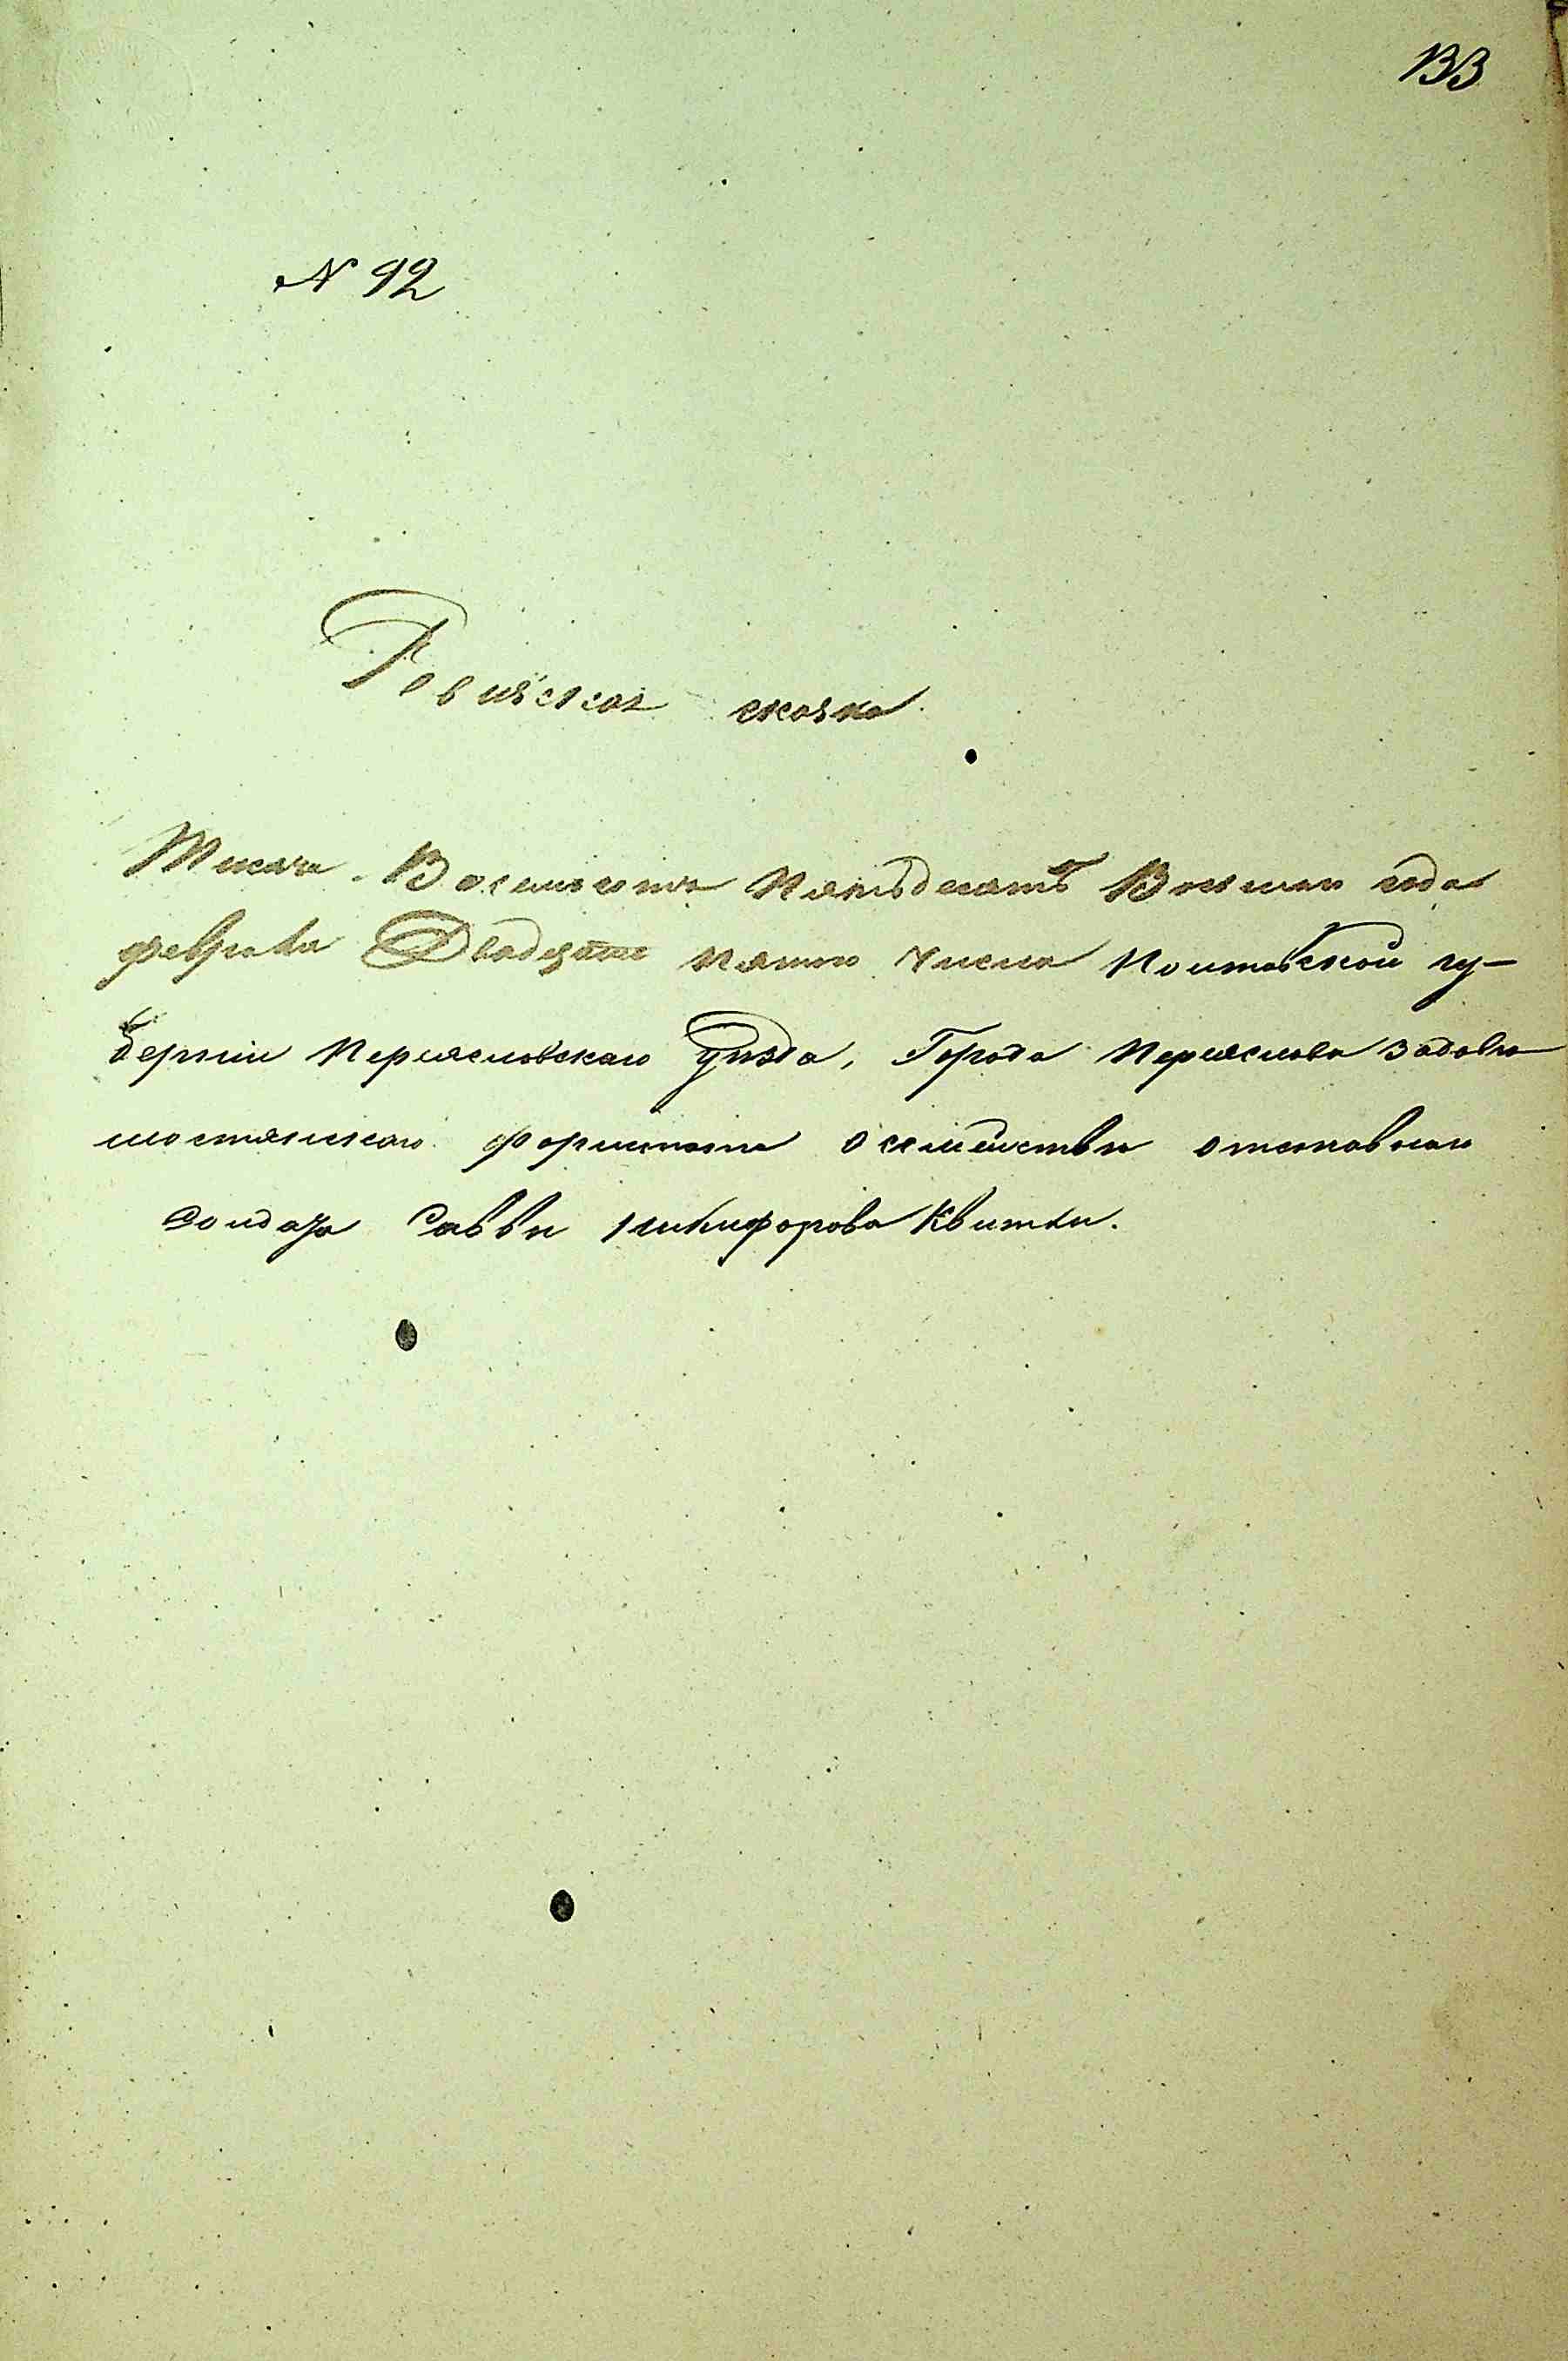 133
N 92
Ревизская сказка
Тысяча Восемсотъ Пятьдесятъ Восмаго года
февраля Двадцать пятого Числа Полтавской гу-
берніи Переяславскаго уѣзда, Города Переяслова Задово
мостянскаго форштата о семействѣ отставнаго
Солдата Саввы Никифорова Квитки.